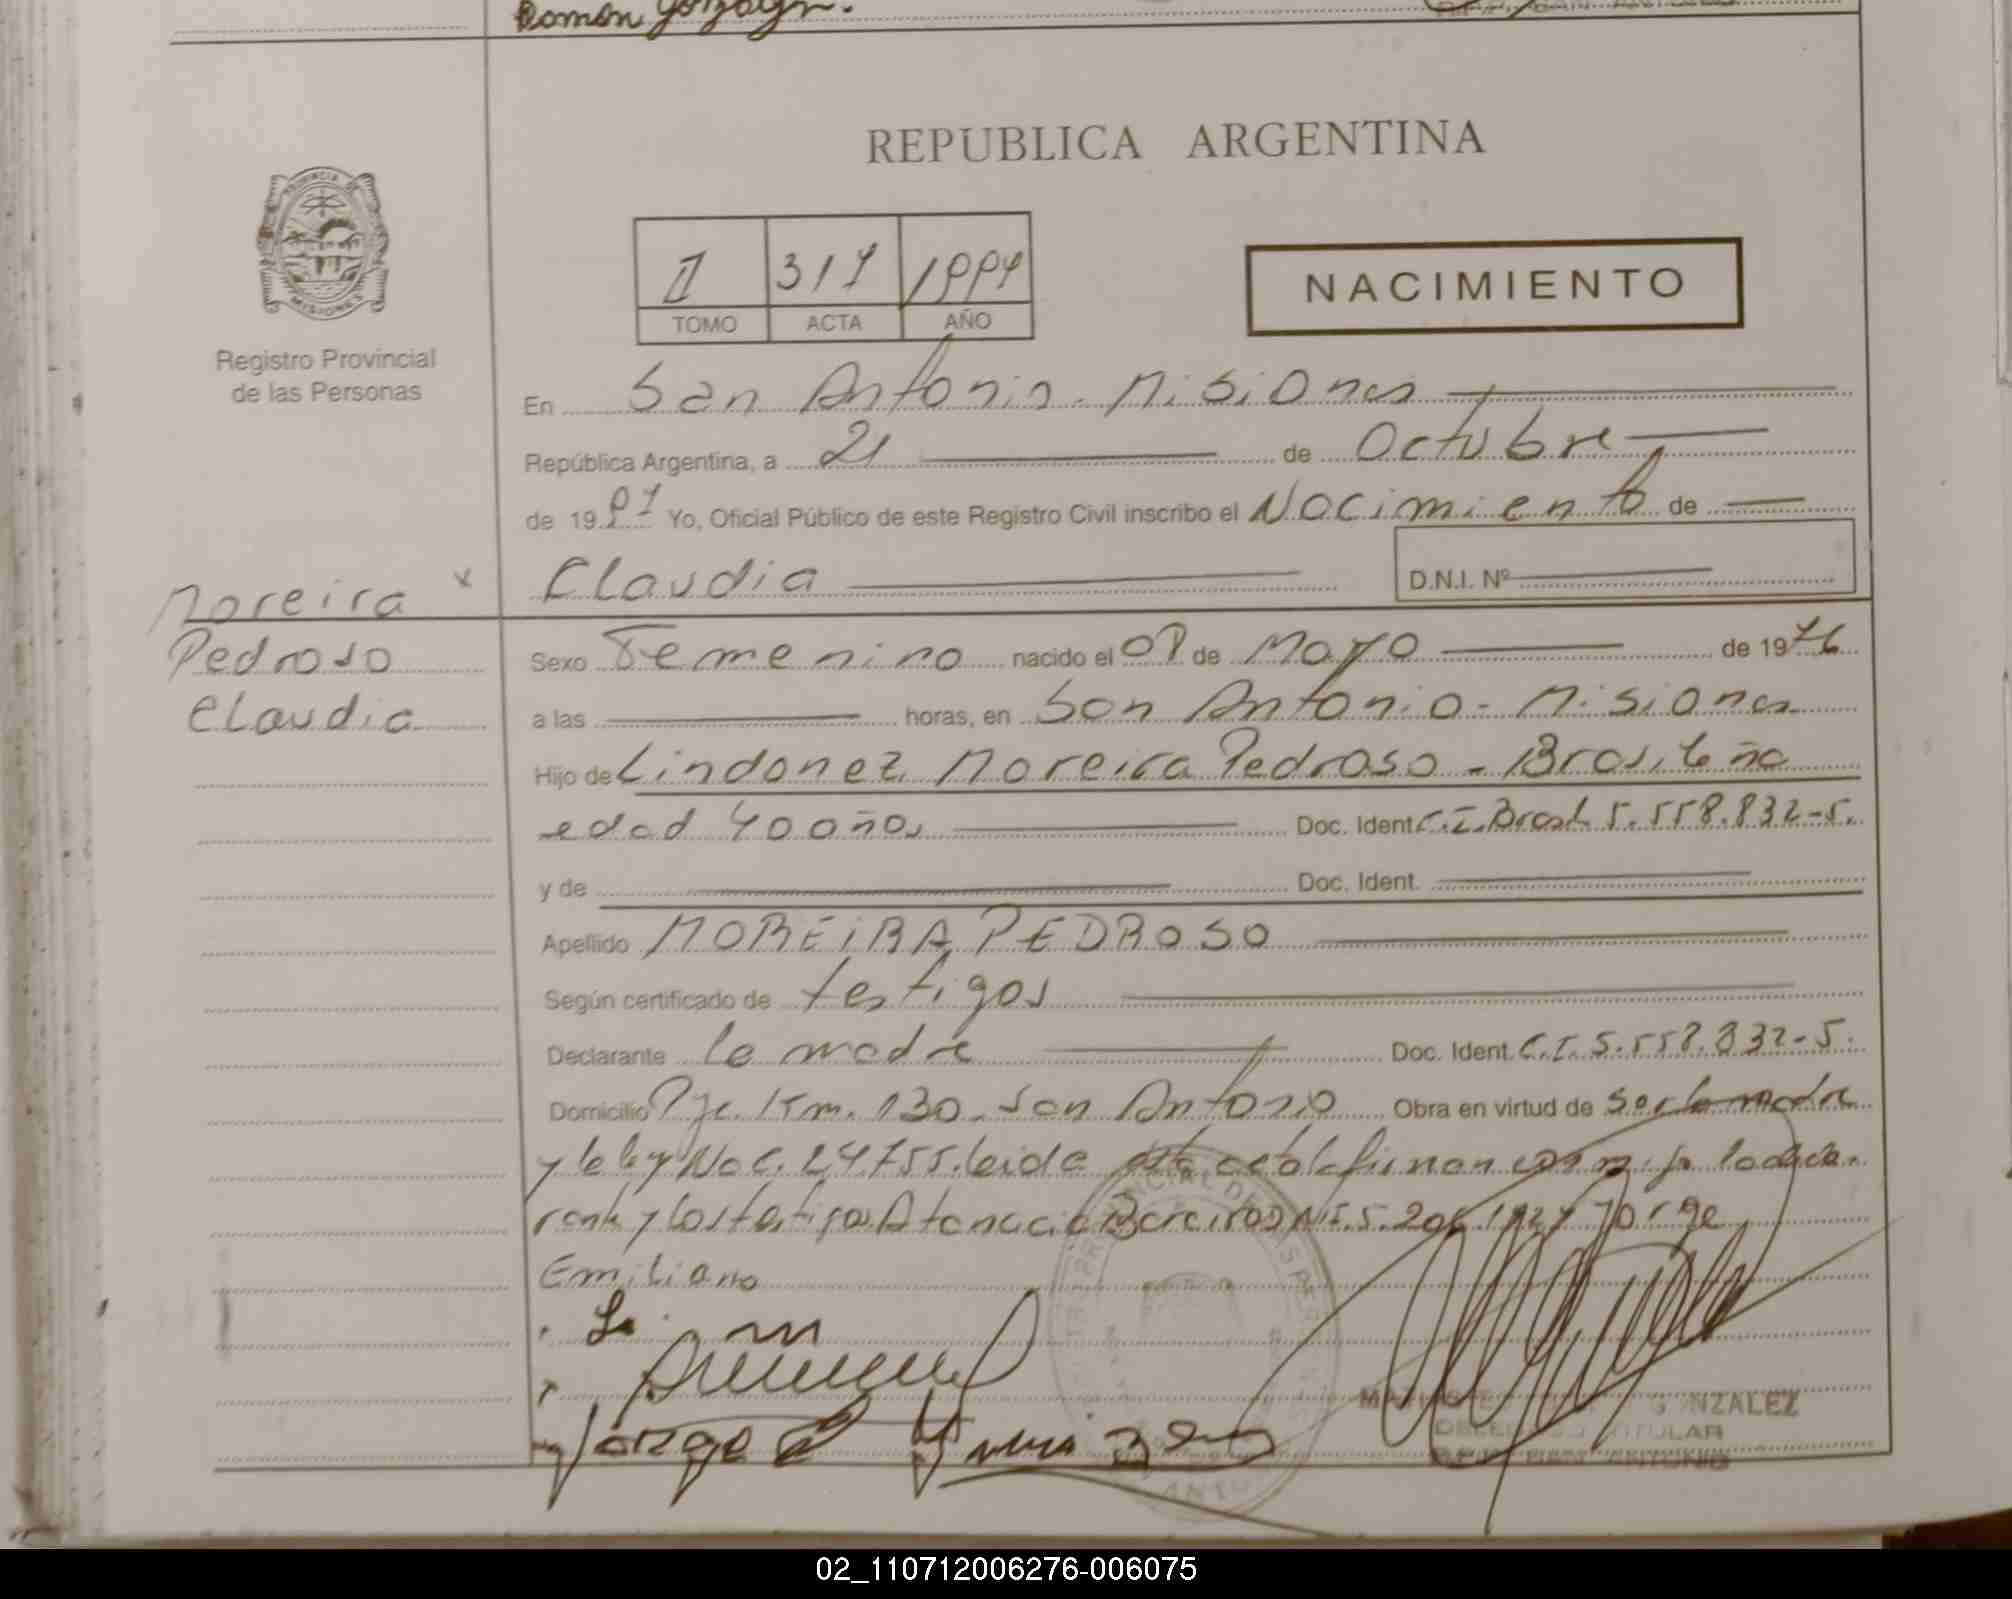 Ramón González.
REPUBLICA ARGENTINA
PROVINCIA DE
MISIONES
Registro Provincial
de las Personas
II 317 1997
TOMO ACTA AÑO
NACIMIENTO
En San Antonio - Misiones
República Argentina, a 21 de Octubre
de 1997 Yo, Oficial Público de este Registro Civil inscribo el Nacimiento de
Claudia D.N.I. Nº
Moreira x
Pedroso
Claudia
Sexo Femenino nacido el 09 de Mayo de 1976
a las horas, en San Antonio - Misiones
Hijo de Lindonez Moreira Pedroso - Brasileña
edad 40 años Doc. Ident. C.I. Brasil 5.558.832-5.
y de Doc. Ident.
Apellido MOREIRA PEDROSO
Según certificado de testigos
Declarante la madre Doc. Ident. C.I. 5.558.832-5.
Domicilio Pje. Km. 130 - San Antonio Obra en virtud de ser la madre
y la ley Nac. 24.755. leida esta acta la firman la decla-
rante y los testigos Atanacio Jorge
Emiliano
Jorge E
GONZALEZ
DELEGADO TITULAR
SAN ANTONIO
02_110712006276-006075